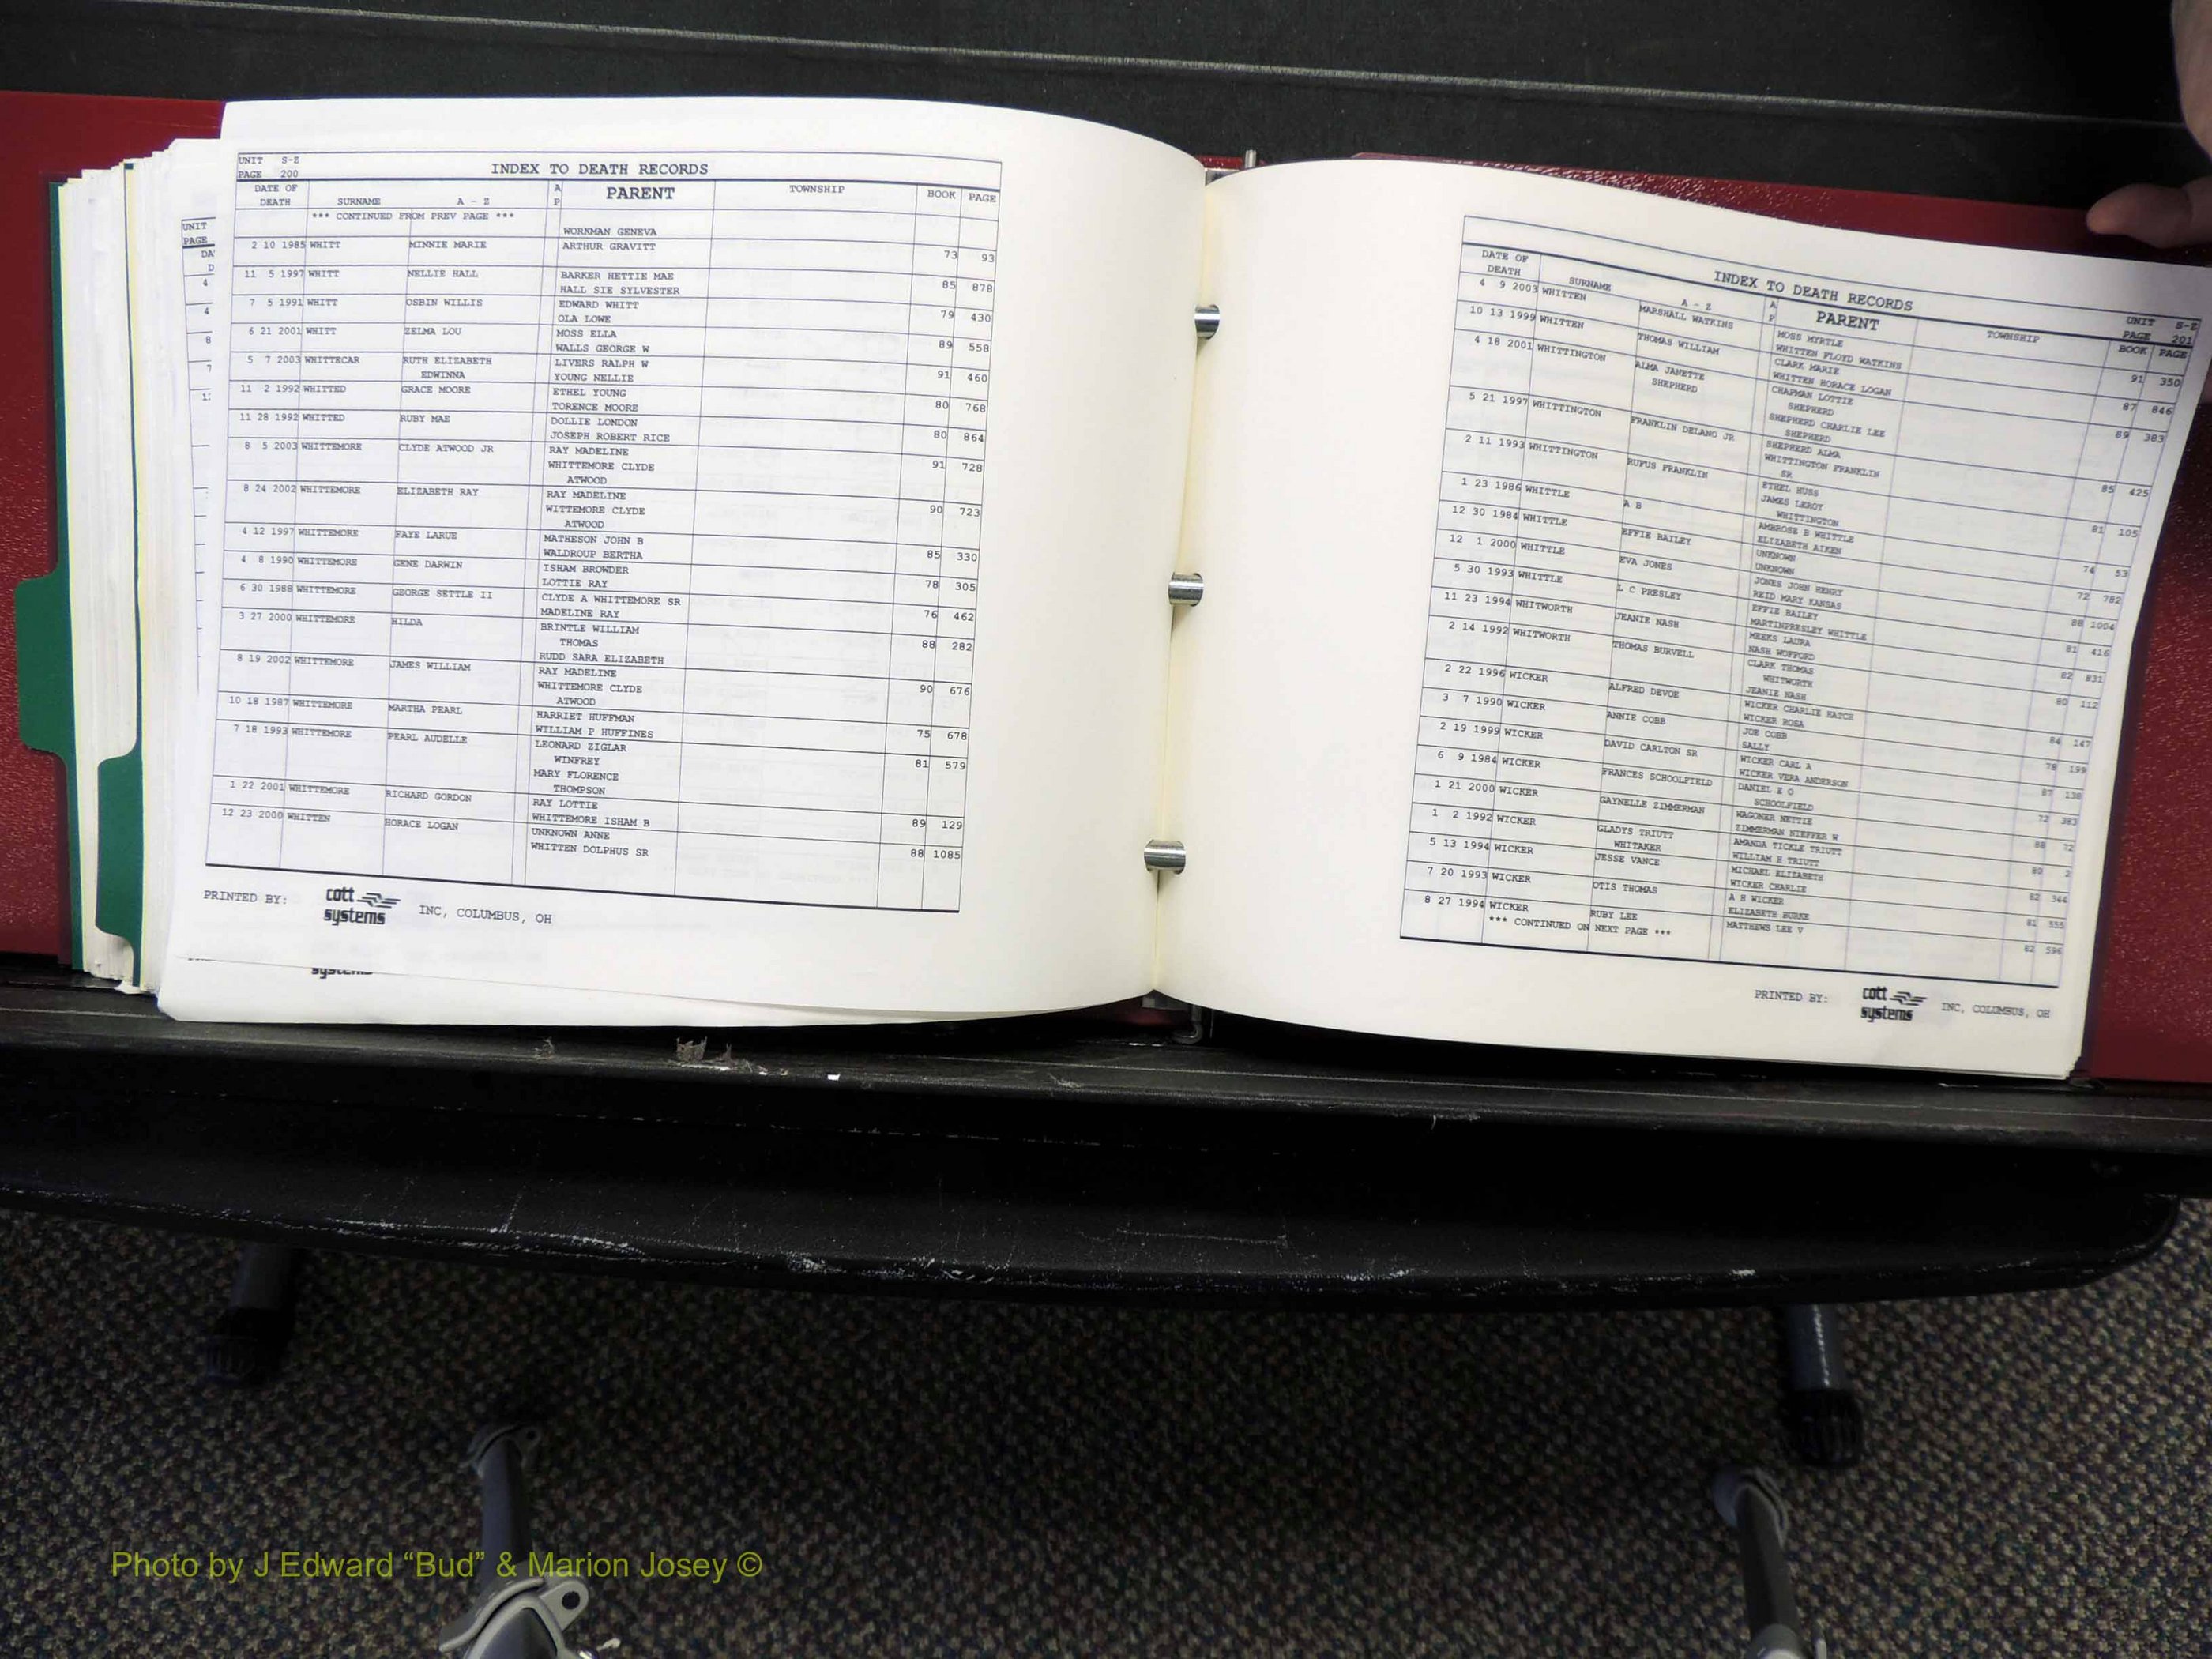 UNIT S-Z
PAGE 200
INDEX TO DEATH RECORDS
DATE OF DEATH SURNAME A - Z AP PARENT TOWNSHIP BOOK PAGE
*** CONTINUED FROM PREV PAGE ***
WORKMAN GENEVA
2 10 1985 WHITT MINNIE MARIE ARTHUR GRAVITT 73 93
11 5 1997 WHITT NELLIE HALL BARKER HETTIE MAE 85 878
HALL SIE SYLVESTER
7 5 1991 WHITT OSBIN WILLIS EDWARD WHITT 79 430
OLA LOWE
6 21 2001 WHITT ZELMA LOU MOSS ELLA 89 558
WALLS GEORGE W
5 7 2003 WHITTECAR RUTH ELIZABETH LIVERS RALPH W 91 460
EDWINNA YOUNG NELLIE
11 2 1992 WHITTED GRACE MOORE ETHEL YOUNG 80 768
TORENCE MOORE
11 28 1992 WHITTED RUBY MAE DOLLIE LONDON 80 864
JOSEPH ROBERT RICE
8 5 2003 WHITTEMORE CLYDE ATWOOD JR RAY MADELINE 91 728
WHITTEMORE CLYDE
ATWOOD
8 24 2002 WHITTEMORE ELIZABETH RAY RAY MADELINE 90 723
WITTEMORE CLYDE
ATWOOD
4 12 1997 WHITTEMORE FAYE LARUE MATHESON JOHN B 85 330
WALDROUP BERTHA
4 8 1990 WHITTEMORE GENE DARWIN ISHAM BROWDER 78 305
LOTTIE RAY
6 30 1988 WHITTEMORE GEORGE SETTLE II CLYDE A WHITTEMORE SR 76 462
MADELINE RAY
3 27 2000 WHITTEMORE HILDA BRINTLE WILLIAM 88 282
THOMAS
RUDD SARA ELIZABETH
8 19 2002 WHITTEMORE JAMES WILLIAM RAY MADELINE 90 676
WHITTEMORE CLYDE
ATWOOD
10 18 1987 WHITTEMORE MARTHA PEARL HARRIET HUFFMAN 75 678
WILLIAM P HUFFINES
7 18 1993 WHITTEMORE PEARL AUDELLE LEONARD ZIGLAR 81 579
WINFREY
MARY FLORENCE
THOMPSON
1 22 2001 WHITTEMORE RICHARD GORDON RAY LOTTIE 89 129
WHITTEMORE ISHAM B
12 23 2000 WHITTEN HORACE LOGAN UNKNOWN ANNE 88 1085
WHITTEN DOLPHUS SR
PRINTED BY: cott systems INC, COLUMBUS, OH
INDEX TO DEATH RECORDS
UNIT S-Z
PAGE 201
DATE OF DEATH SURNAME A - Z AP PARENT TOWNSHIP BOOK PAGE
4 9 2003 WHITTEN MARSHALL WATKINS MOSS MYRTLE 91 350
WHITTEN FLOYD WATKINS
10 13 1999 WHITTEN THOMAS WILLIAM CLARK MARIE 87 846
WHITTEN HORACE LOGAN
4 18 2001 WHITTINGTON ALMA JANETTE CHAPMAN LOTTIE 89 383
SHEPHERD SHEPHERD
SHEPHERD CHARLIE LEE
SHEPHERD
5 21 1997 WHITTINGTON FRANKLIN DELANO JR SHEPHERD ALMA 85 425
WHITTINGTON FRANKLIN
SR
2 11 1993 WHITTINGTON RUFUS FRANKLIN ETHEL HUSS 81 105
JAMES LEROY
WHITTINGTON
1 23 1986 WHITTLE A B AMBROSE B WHITTLE 74 53
ELIZABETH AIKEN
12 30 1984 WHITTLE EFFIE BAILEY UNKNOWN 72 782
UNKNOWN
12 1 2000 WHITTLE EVA JONES JONES JOHN HENRY 88 1004
REID MARY KANSAS
5 30 1993 WHITTLE L C PRESLEY EFFIE BAILEY 81 416
MARTINPRESLEY WHITTLE
11 23 1994 WHITWORTH JEANIE NASH MEEKS LAURA 82 831
NASH WOFFORD
2 14 1992 WHITWORTH THOMAS BURVELL CLARK THOMAS 80 112
WHITWORTH
JEANIE NASH
2 22 1996 WICKER ALFRED DEVOE WICKER CHARLIE HATCH 84 147
WICKER ROSA
3 7 1990 WICKER ANNIE COBB JOE COBB 78 199
SALLY
2 19 1999 WICKER DAVID CARLTON SR WICKER CARL A 87 138
WICKER VERA ANDERSON
6 9 1984 WICKER FRANCES SCHOOLFIELD DANIEL E O 72 383
SCHOOLFIELD
WAGONER NETTIE
1 21 2000 WICKER GAYNELLE ZIMMERMAN ZIMMERMAN NIEFFER W 88 72
1 2 1992 WICKER GLADYS TRIUTT AMANDA TICKLE TRIUTT 80 2
WHITAKER WILLIAM H TRIUTT
5 13 1994 WICKER JESSE VANCE MICHAEL ELIZABETH 82 344
WICKER CHARLIE
7 20 1993 WICKER OTIS THOMAS A H WICKER 81 555
ELIZABETH BURKE
8 27 1994 WICKER RUBY LEE MATTHEWS LEE V 82 596
*** CONTINUED ON NEXT PAGE ***
PRINTED BY: cott systems INC, COLUMBUS, OH
Photo by J Edward “Bud” & Marion Josey ©